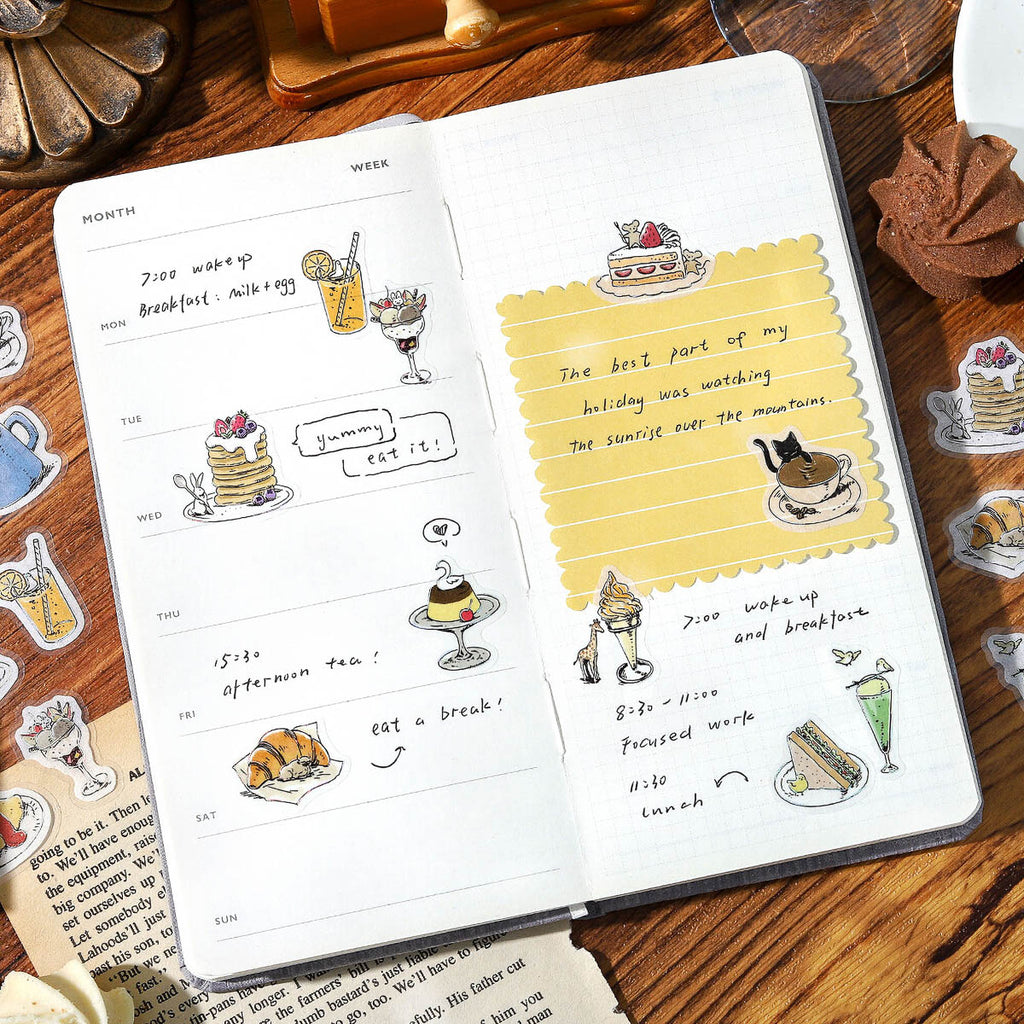 MONTH
WEEK
7:00 wake up
Breakfast: milk + egg
MON
TUE
yummy
eat it!
WED
THU
15:30
afternoon tea!
FRI
eat a break!
SAT
SUN
The best part of my
holiday was watching
the sunrise over the mountains.
7:00 wake up
and breakfast
8:30-11:00
Focused work
11:30
Lunch
AL
going to be it. Then
to. We'll have enoug
the equipment, raise
big company. We'
set ourselves up
Let somebody el
Lahoods'll just
past his son, to
"But we ne
osh and M
tin-pans hav
any longer. I wa
the farmers' bill is
dumb bastard's just liable
to go, too. We'll have to figure
fully. His father cut
of him you
man